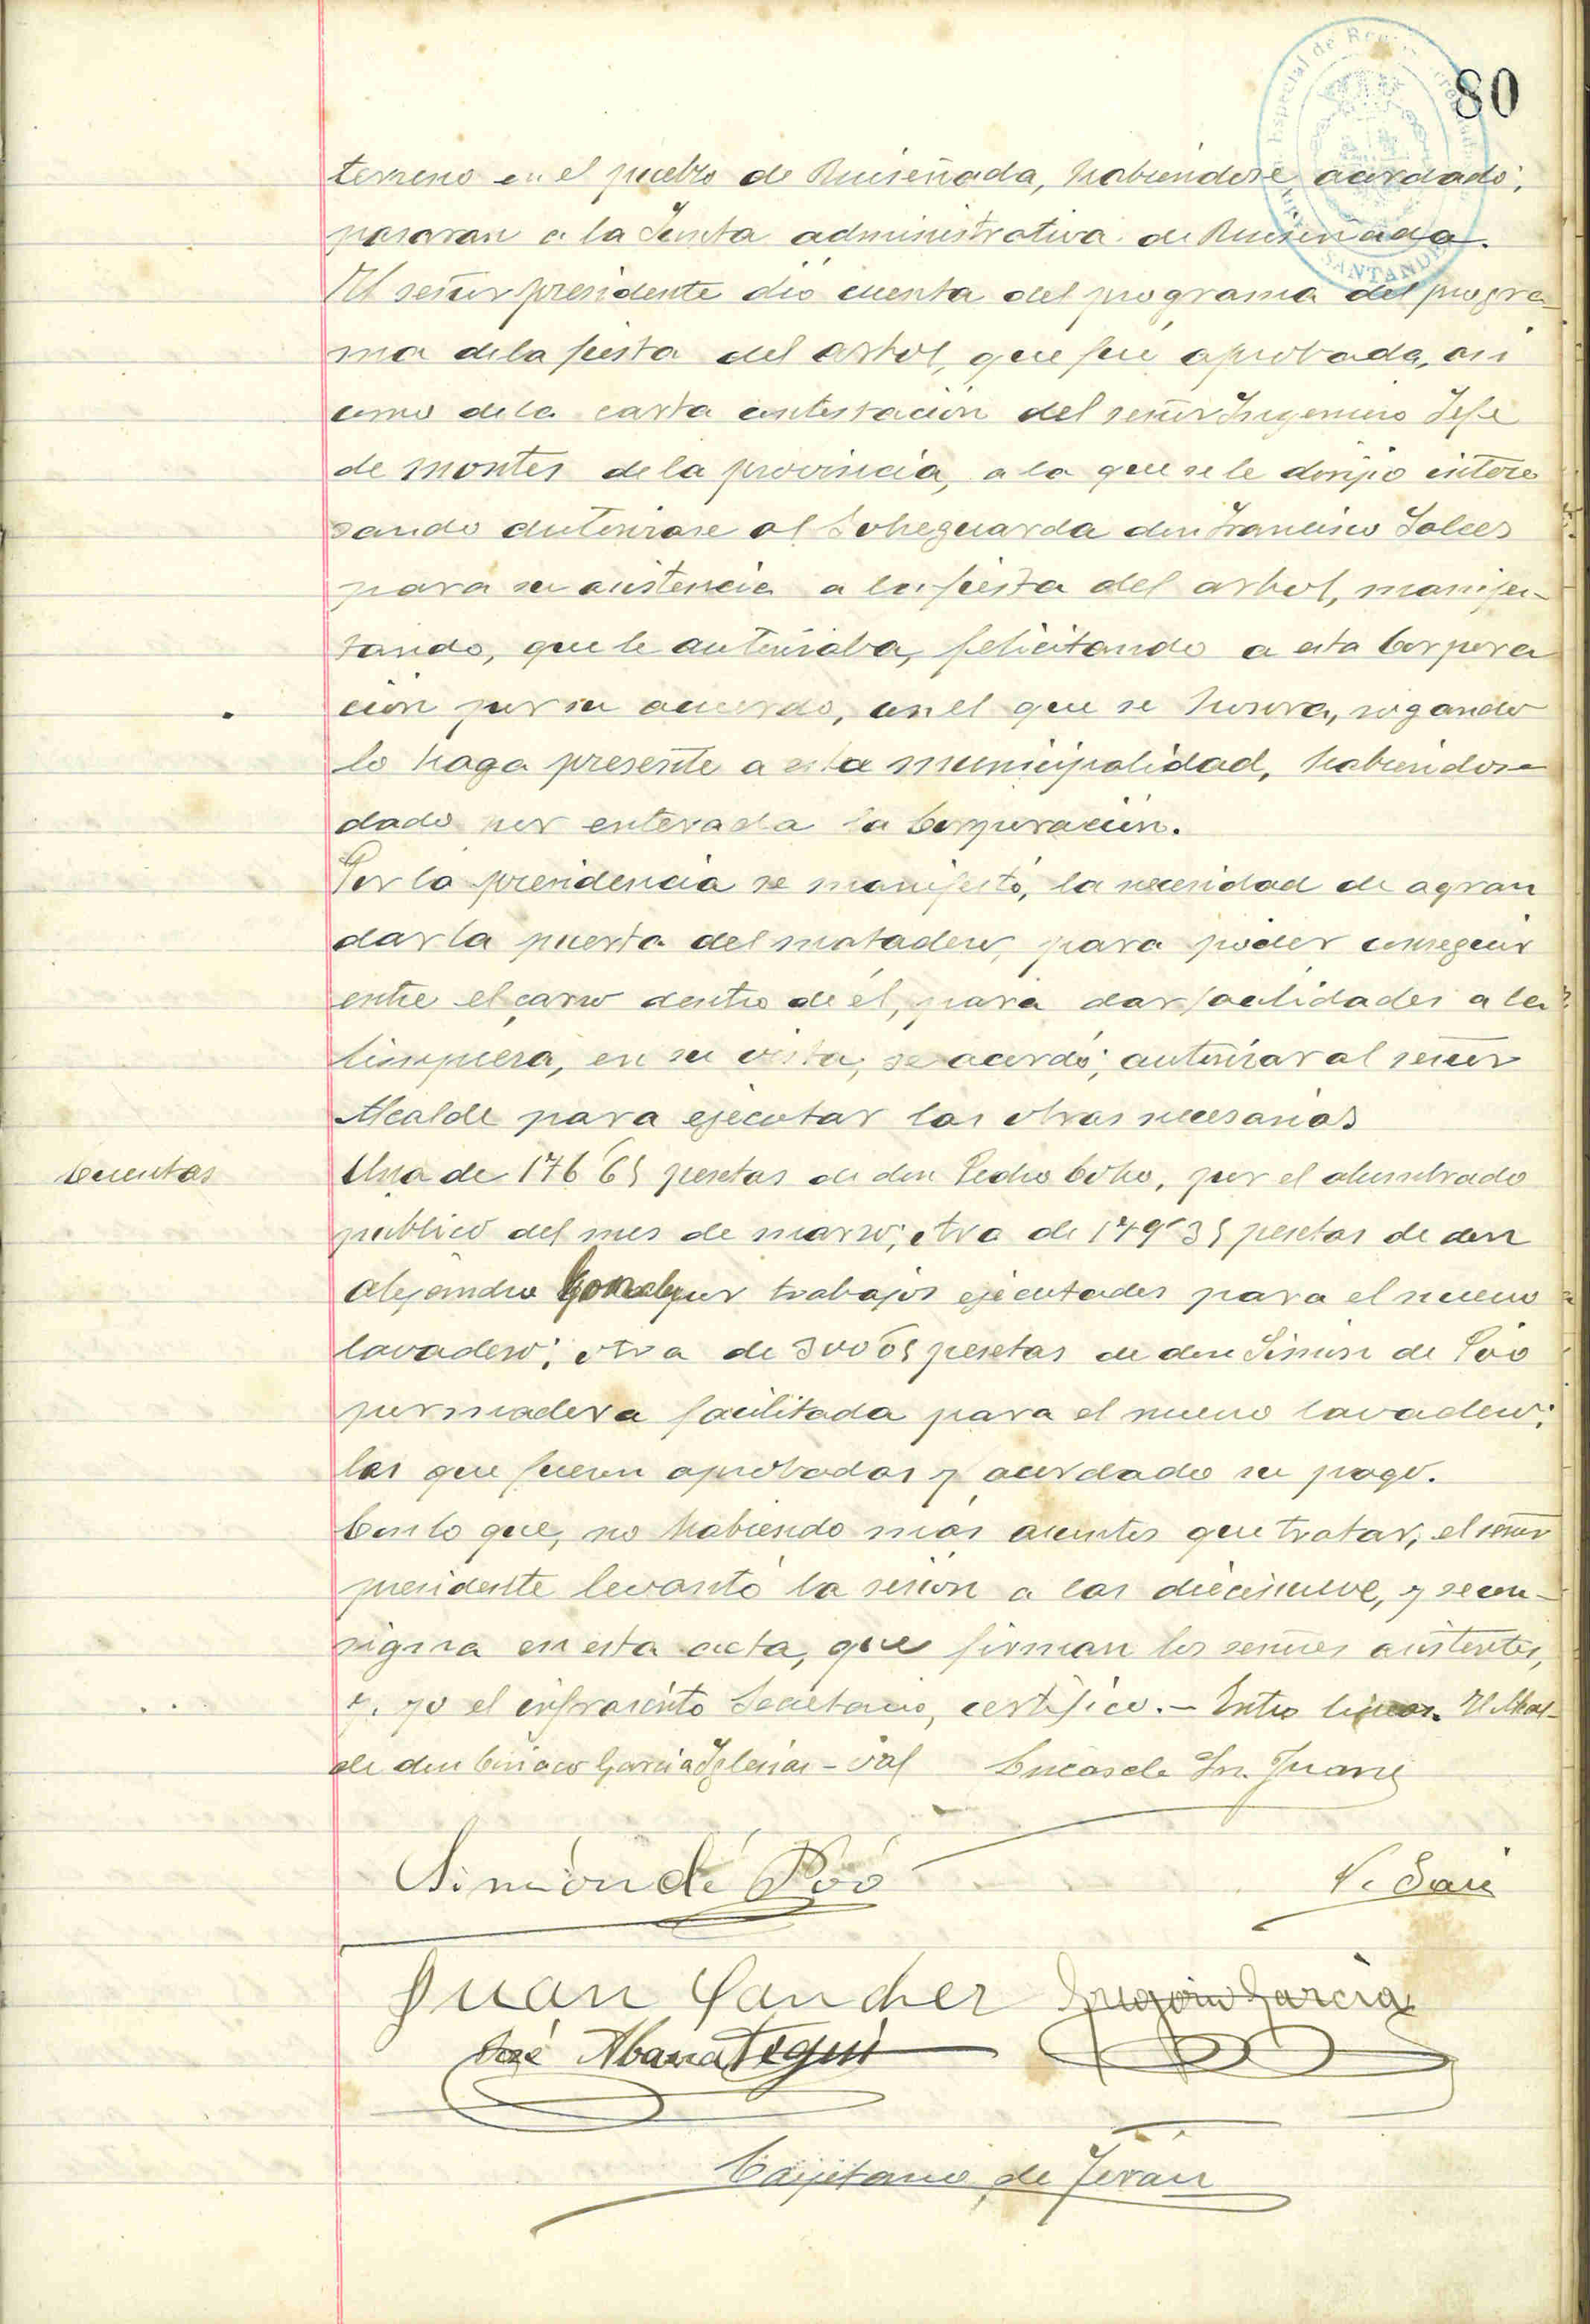 80
SANTANDER
terreno en el pueblo de Ruiseñada, habiendose acordado;
pasaran a la Junta administrativa de Ruiseñada.
El señor presidente dio cuenta del programa del progra-
ma de la fiesta del arbol, que fue aprobada, asi
como de la carta contestacion del señor Ingeniero Jefe
de montes de la provincia, a la que se le dirijio intere
sando autorizase al Sobreguarda don Francisco Salces
para su asistencia a la fiesta del arbol, manifes-
tando, que le autorizaba, felicitando a esta Corpora
cion por su acuerdo, en el que se honra, rogando
lo haga presente a esta municipalidad, habiendose
dado por enterada la Corporacion.
Por la presidencia se manifestó, la necesidad de agran
dar la puerta del matadero, para poder conseguir
entre el carro dentro de él, para dar facilidades a la
limpieza, en su vista, se acordó; autorizar al señor
Alcalde para ejecutar las obras necesarias
Cuentas
Una de 176'65 pesetas de don Pedro Cobo, por el alumbrado
publico del mes de marzo; otra de 179'35 pesetas de don
Alejandro Gonzalez por trabajos ejecutados para el nuevo
lavadero; otra de 300'05 pesetas de don Simon de Poo
por madera facilitada para el nuevo lavadero;
las que fueron aprobadas y acordado su pago.
Con lo que, no habiendo más asuntos que tratar, el señor
presidente levantó la sesión a las diecinueve, y se con-
signa en esta acta, que firman los señores asistentes,
y. yo el infrascrito Secretario, certifico.- Entre lineas. El Alcal-
de don Ciriaco Garcia Iglesias - val Lucas de Sn. Juan
Simón de Poó
V. Saiz
Juan Sanchez Gregorio Garcia
José Abarrategui
Cayetano de Teran